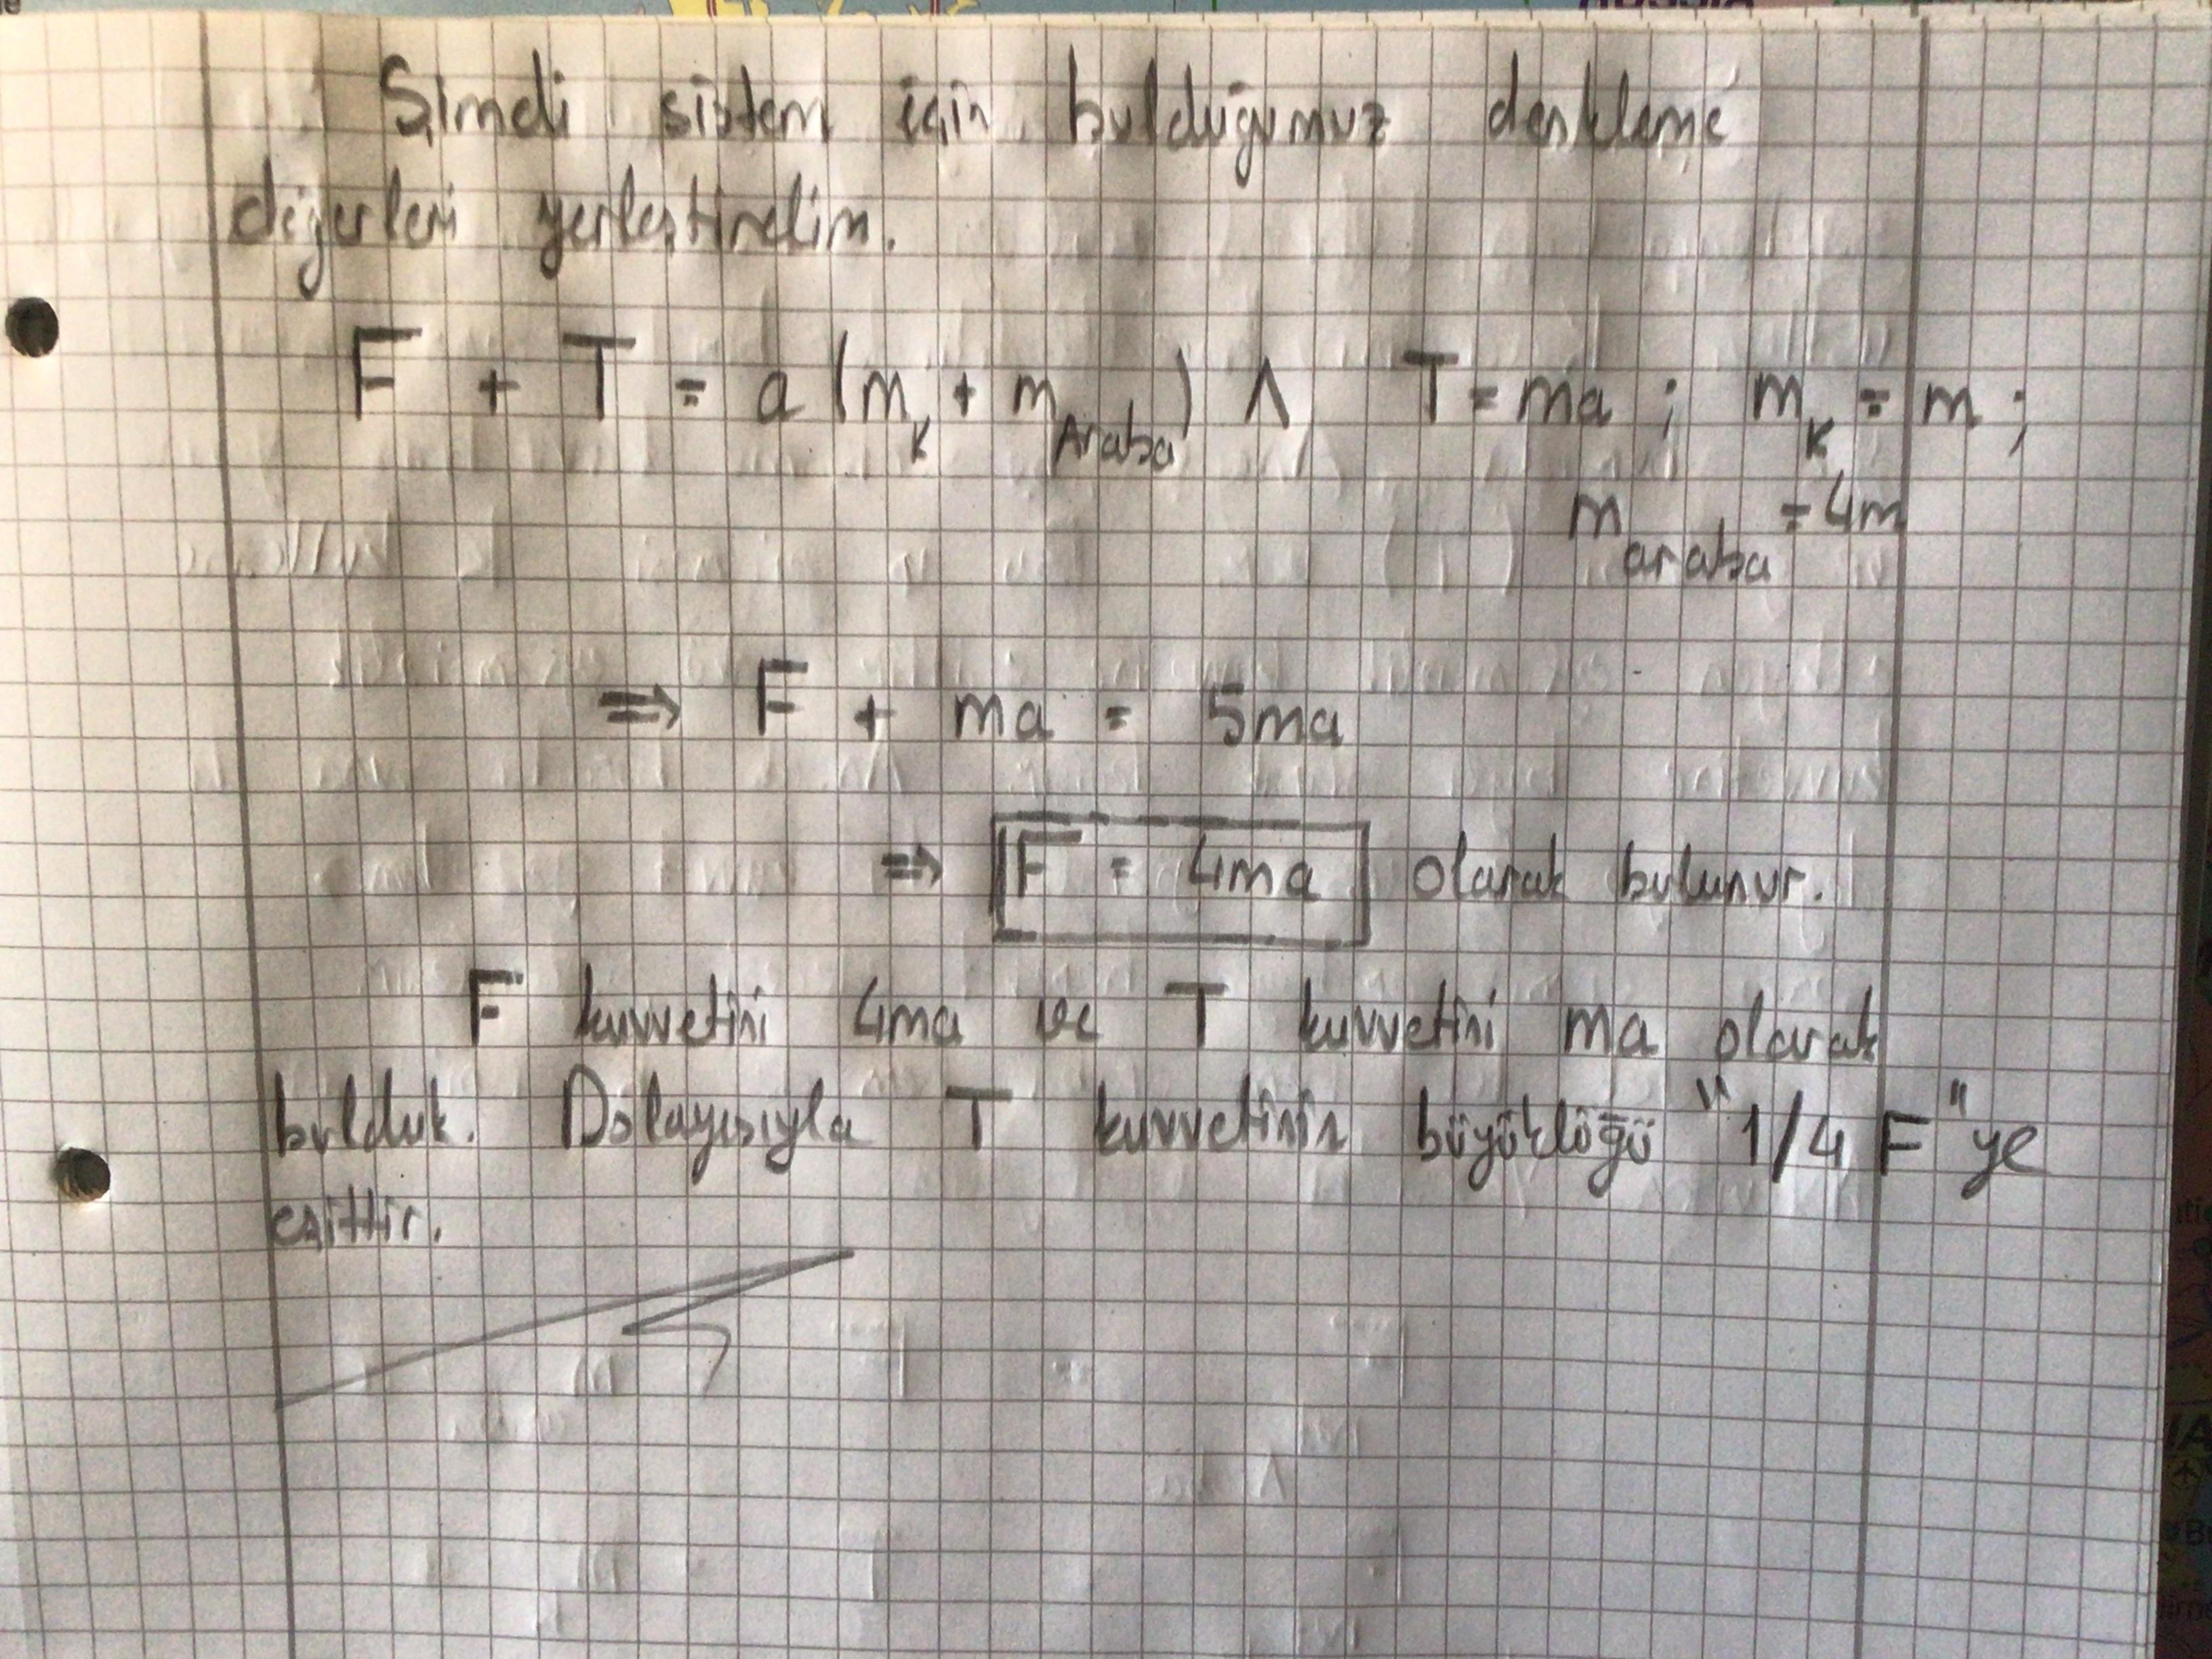 Şimdi sistem için bulduğumuz denkleme
değerleri yerleştirelim.
F + T = a (m_K + m_Araba) ∧ T = ma ; m_K = m ;
m_araba = 4m
⇒ F + ma = 5ma
⇒ F = 4ma olarak bulunur.
F kuvvetini 4ma ve T kuvvetini ma olarak
bulduk. Dolayısıyla T kuvvetinin büyüklüğü "1/4 F" ye
eşittir.